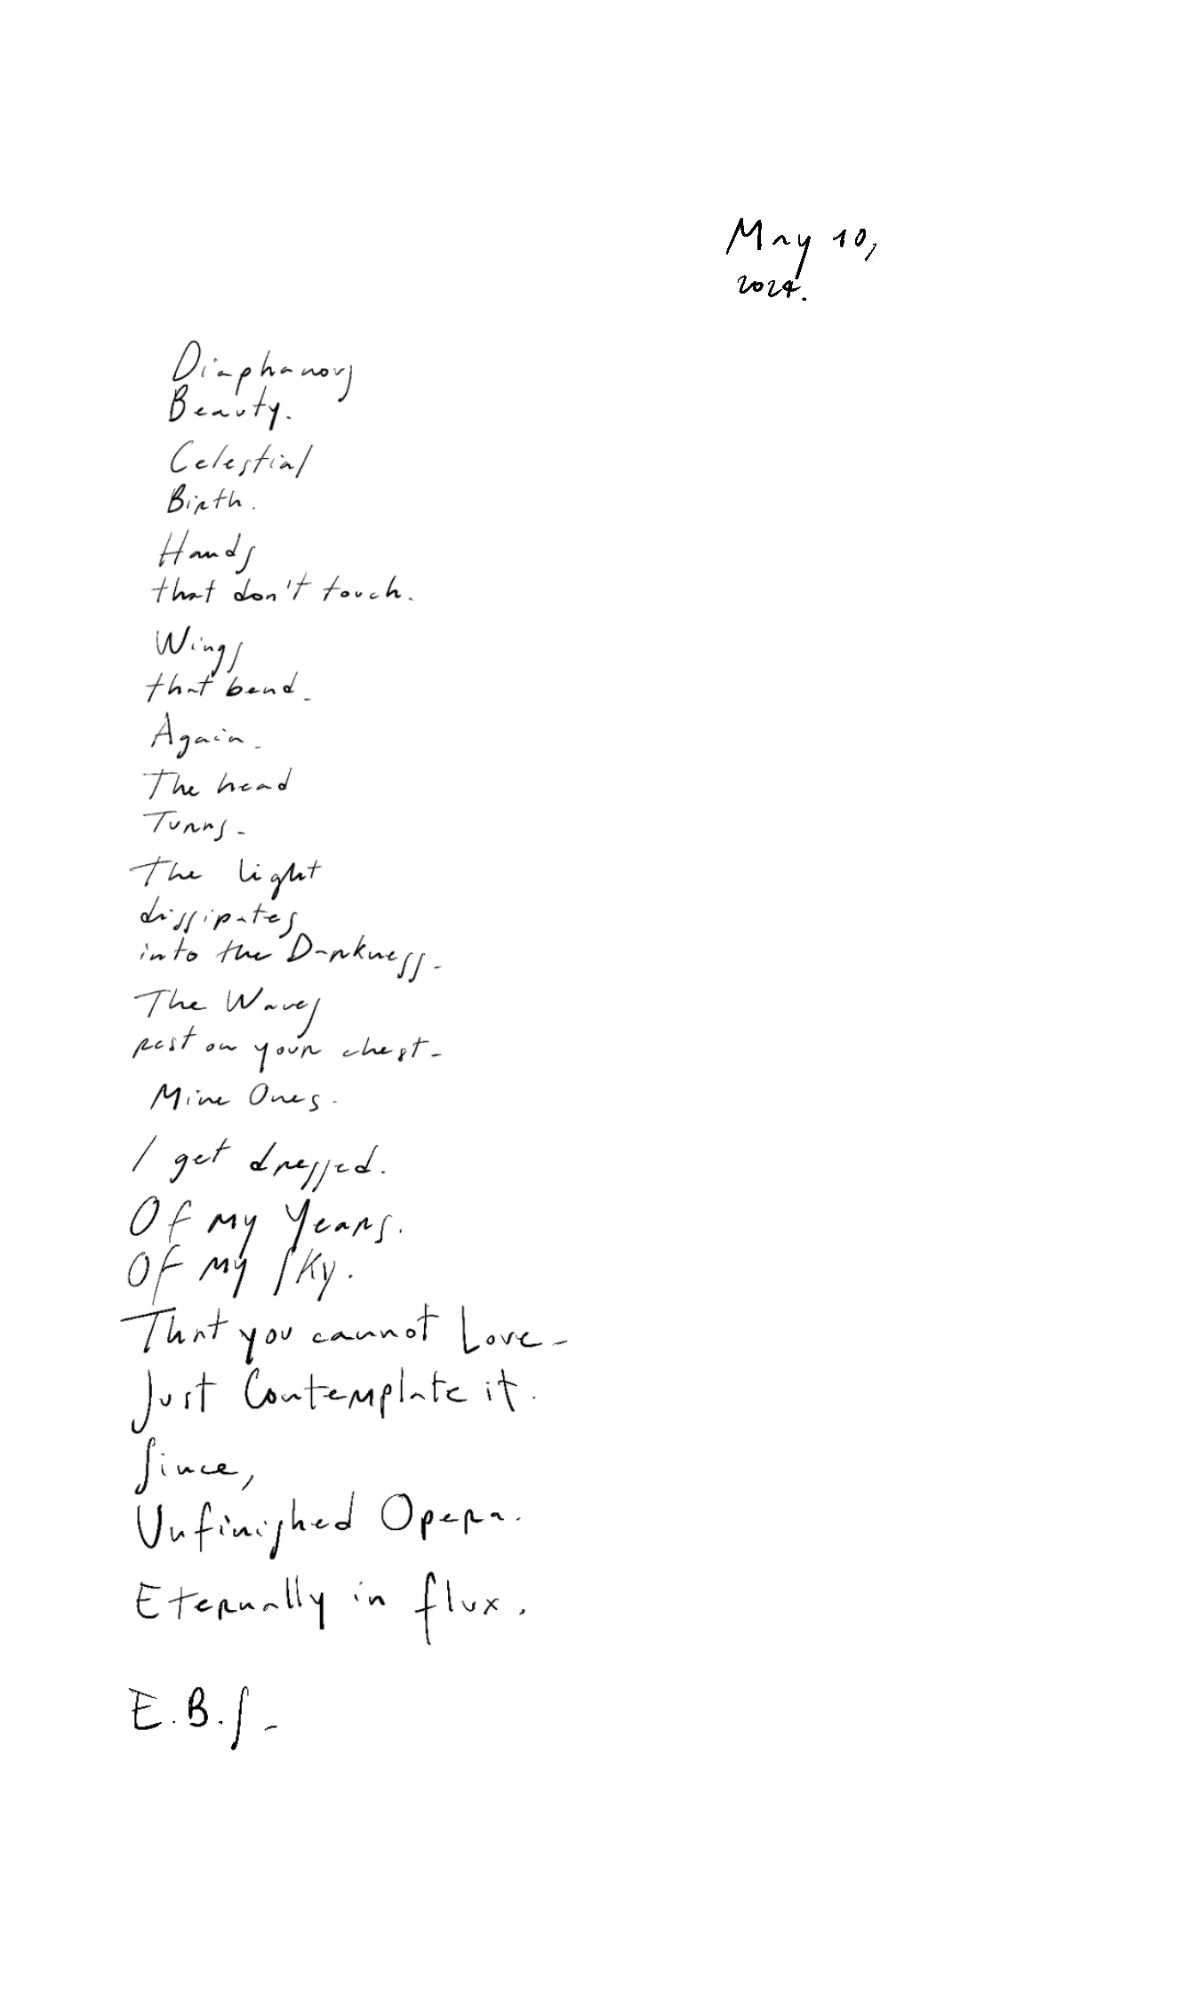 May 10,
2024.
Diaphanous
Beauty.
Celestial
Birth.
Hands
that don't touch.
Wings
that bend.
Again.
The head
Turns.
The light
dissipates
into the Darkness.
The Waves
rest on your chest.
Mine Ones.
I get dressed.
Of my Years.
Of my Sky.
That you cannot Love.
Just Contemplate it.
Since,
Unfinished Opera.
Eternally in flux.
E.B.S.